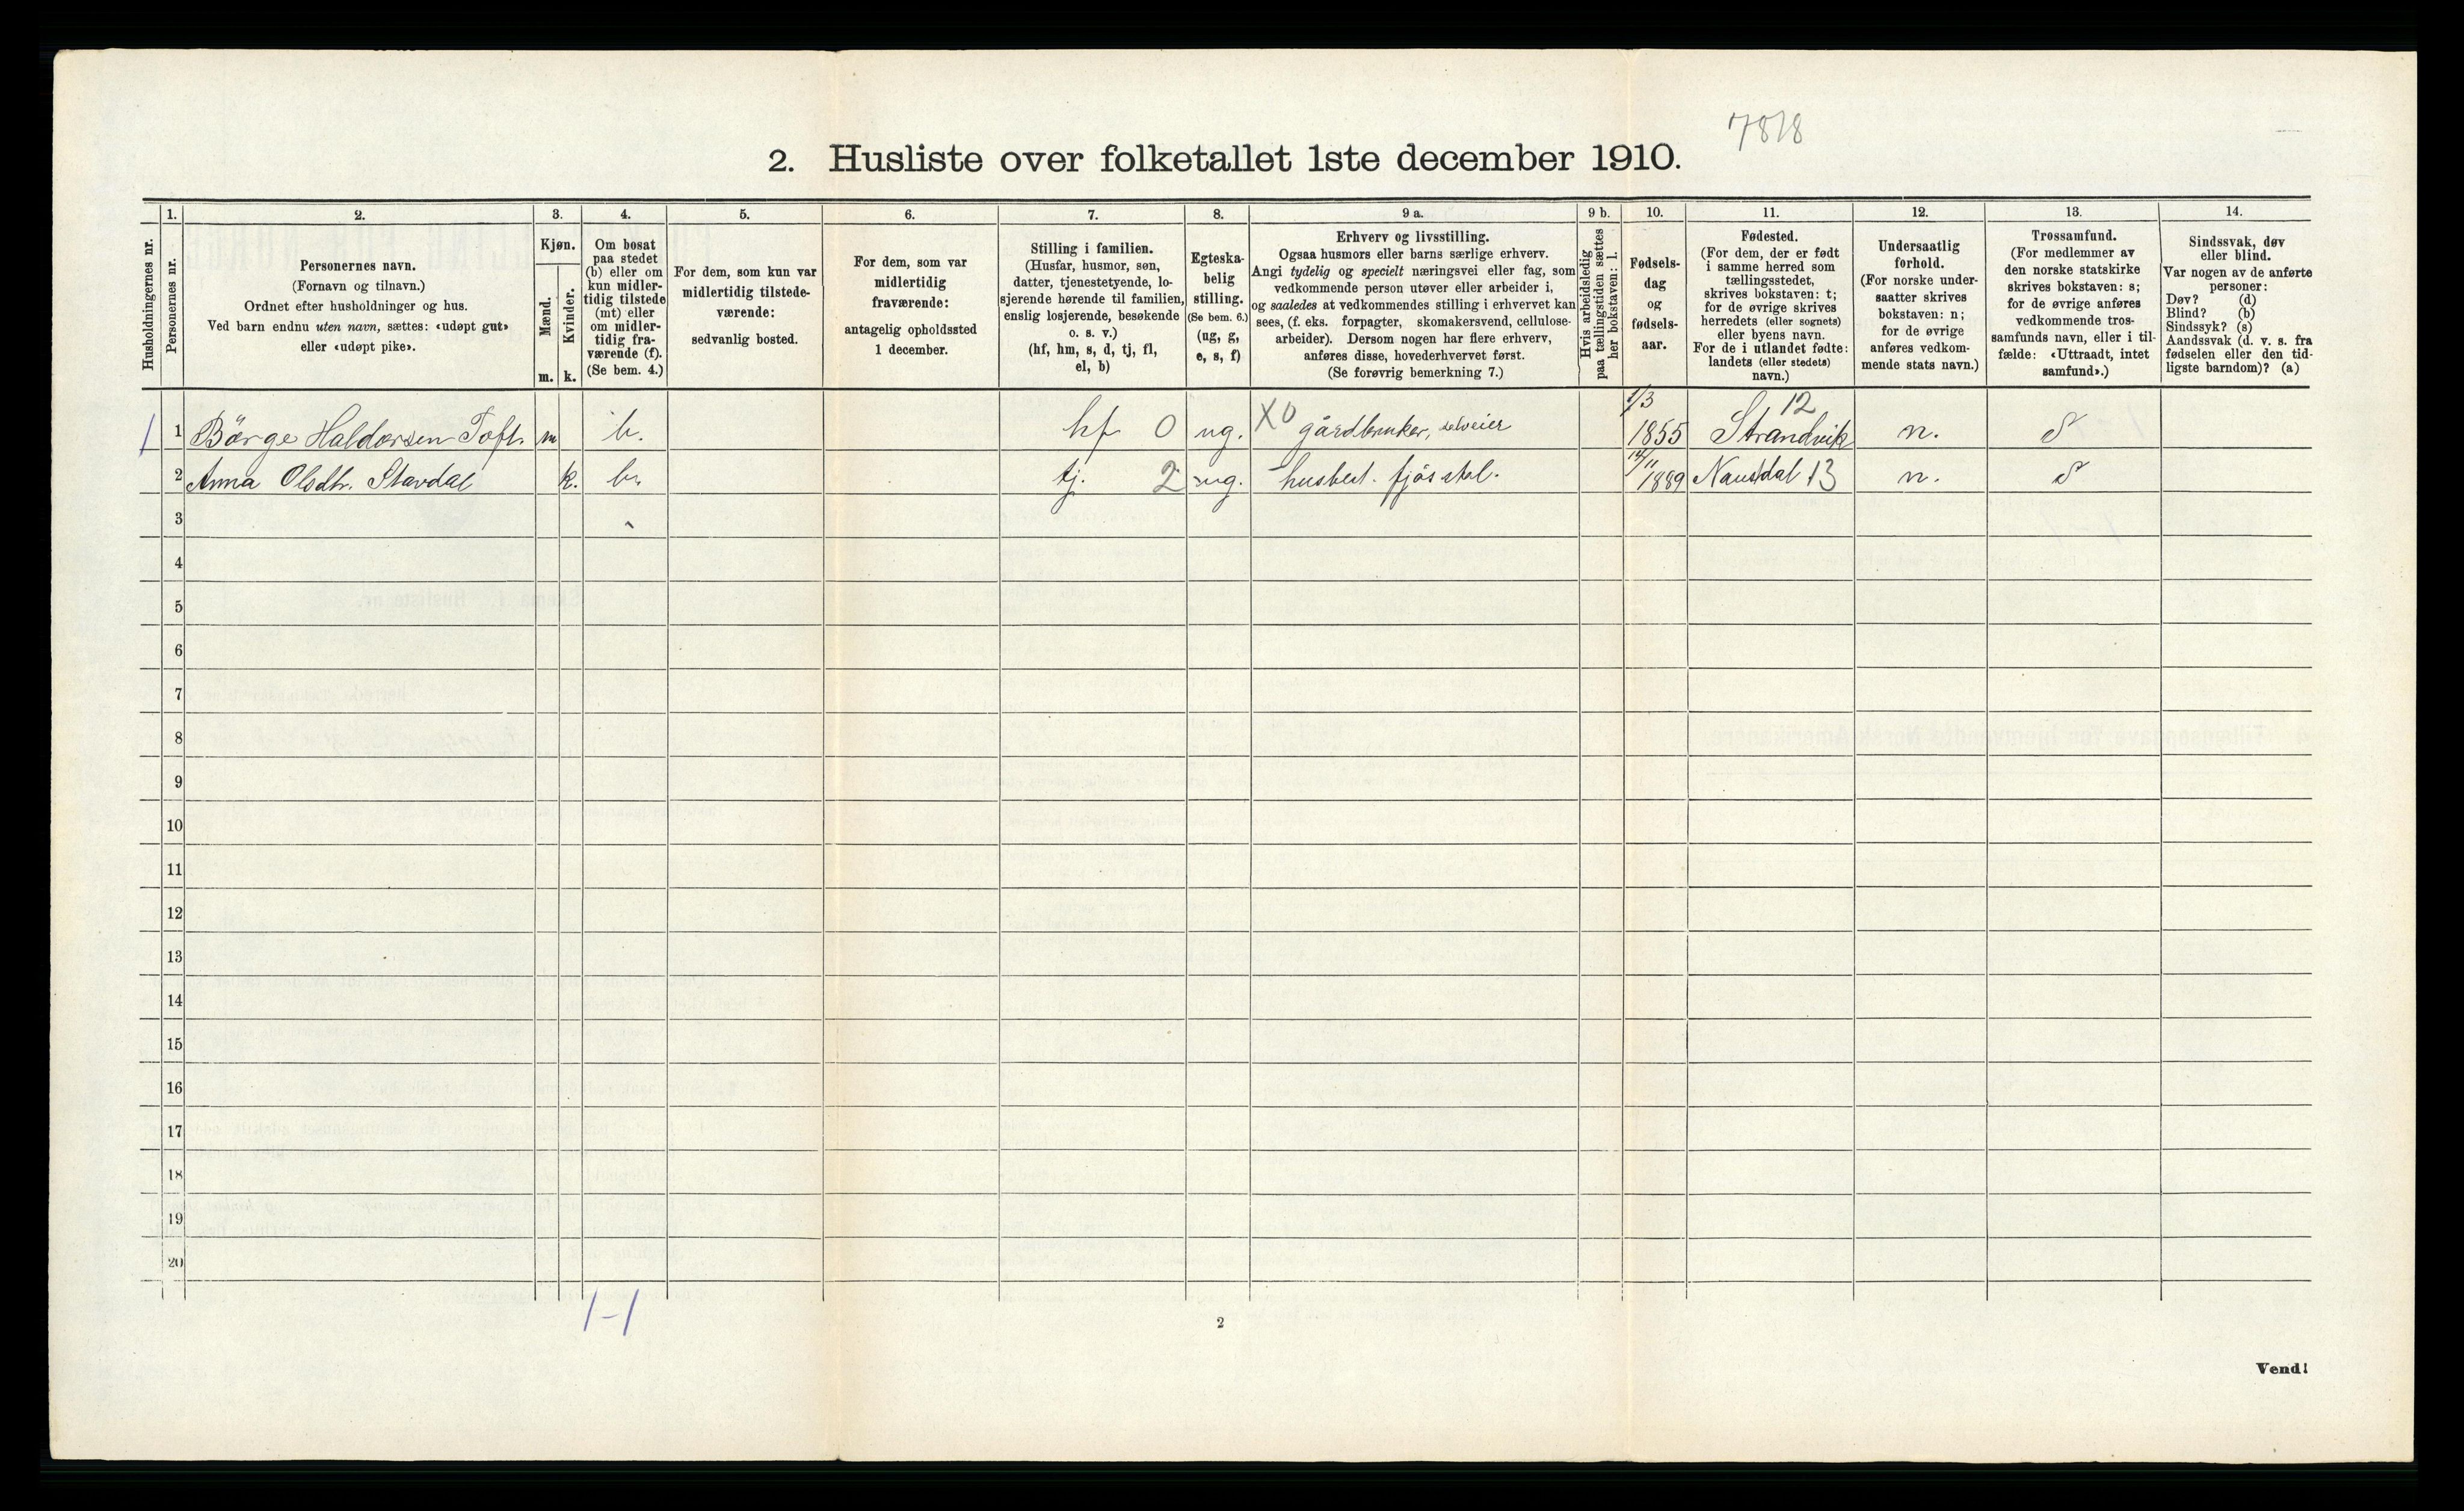 7818
2. Husliste over folketallet 1ste december 1910.
Husholdningernes nr.
1.
Personernes nr.
2.
Personernes navn.
(Fornavn og tilnavn.)
Ordnet efter husholdninger og hus.
Ved barn endnu uten navn, sættes: «udøpt gut»
eller «udøpt pike».
3.
Kjøn.
Mænd.
m.
Kvinder.
k.
4.
Om bosat
paa stedet
(b) eller om
kun midler-
tidig tilstede
(mt) eller
om midler-
tidig fra-
værende (f).
(Se bem. 4.)
5.
For dem, som kun var
midlertidig tilstede-
værende:
sedvanlig bosted.
6.
For dem, som var
midlertidig
fraværende:
antagelig opholdssted
1 december.
7.
Stilling i familien.
(Husfar, husmor, søn,
datter, tjenestetyende, lo-
sjerende hørende til familien,
enslig losjerende, besøkende
o. s. v.)
(hf, hm, s, d, tj, fl,
el, b)
8.
Egteska-
belig
stilling.
(Se bem. 6.)
(ug, g,
e, s, f)
9 a.
Erhverv og livsstilling.
Ogsaa husmors eller barns særlige erhverv.
Angi tydelig og specielt næringsvei eller fag, som
vedkommende person utøver eller arbeider i,
og saaledes at vedkommendes stilling i erhvervet kan
sees, (f. eks. forpagter, skomakersvend, cellulose-
arbeider). Dersom nogen har flere erhverv,
anføres disse, hovederhvervet først.
(Se forøvrig bemerkning 7.)
9 b.
Hvis arbeidsledig
paa tællingstiden sættes
her bokstaven: l.
10.
Fødsels-
dag
og
fødsels-
aar.
11.
Fødested.
(For dem, der er født
i samme herred som
tællingsstedet,
skrives bokstaven: t;
for de øvrige skrives
herredets (eller sognets)
eller byens navn.
For de i utlandet fødte:
landets (eller stedets)
navn.)
12.
Undersaatlig
forhold.
(For norske under-
saatter skrives
bokstaven: n;
for de øvrige
anføres vedkom-
mende stats navn.)
13.
Trossamfund.
(For medlemmer av
den norske statskirke
skrives bokstaven: s;
for de øvrige anføres
vedkommende tros-
samfunds navn, eller i til-
fælde: «Uttraadt, intet
samfund».)
14.
Sindssvak, døv
eller blind.
Var nogen av de anførte
personer:
Døv? (d)
Blind? (b)
Sindssyk? (s)
Aandssvak (d. v. s. fra
fødselen eller den tid-
ligste barndom)? (a)
1 1 Börge Haldorsen Toft. m b. hf 0 ug. X0 gårdbruker, selveier 1/3 1855 Strandvik 12 n. S
2 Anna Olsdtr. Stavdal k. b. tj. 2 ug. husbest. fjösstel. 14/11 1889 Naustdal 13 n. S
3
4
5
6
7
8
9
10
11
12
13
14
15
16
17
18
19
20
1-1
2
Vend!